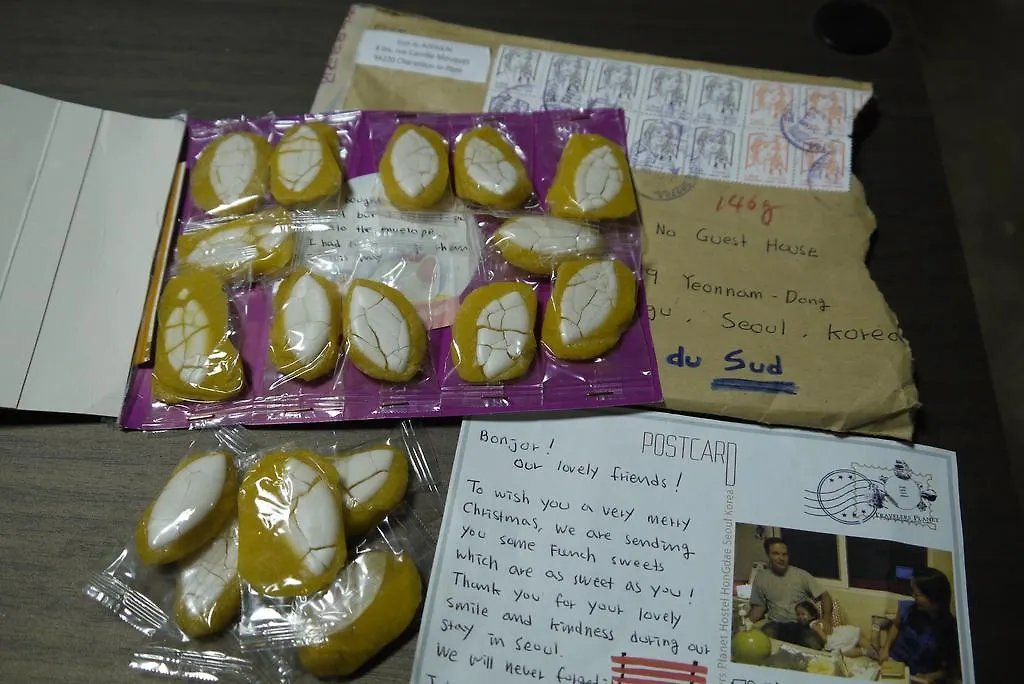 8 bis, rue Camille Mouquet
94220 Charenton-le-Pont
146g
No Guest House
9 Yeonnam-Dong
gu, Seoul, Korea
du Sud
to the envelope.
I had
POSTCARD
Bonjor!
Our lovely friends!
To wish you a very merry
Christmas, we are sending
you some Funch sweets
which are as sweet as you!
Thank you for your lovely
smile and kindness during our
stay in Seoul.
We will never forget
TRAVELERS PLANET
rs Planet Hostel HonGdae Seoul Korea